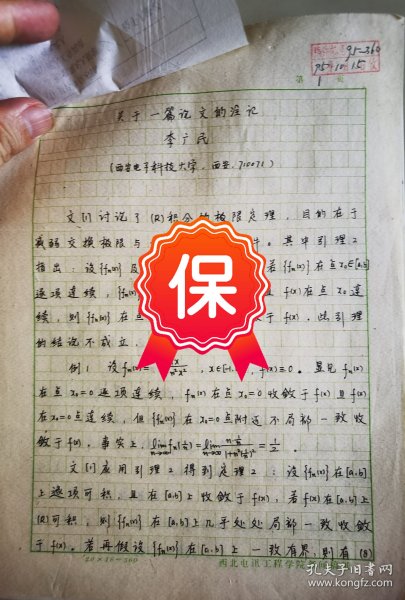 95-360
95.10.15
第 1 页
关于一篇论文的注记
李广民
(西安电子科技大学,西安,710071)
文[1]讨论了(R)积分的极限定理,目的在于
减弱交换极限与 件。其中引理2
指出:设{fₙ(x)} 若{fₙ(x)}在点x₀∈[a,b]
逐项连续,{fₙ f(x)在点x₀连
续,则{fₙ(x)}在点 于f(x),此引理
的结论不成立。
例1 设fₙ(x)= x∈[-1, f(x)≡0。显见fₙ(x)
在点x₀=0逐项连续,fₙ(x)在点x₀=0收敛于f(x)且f(x)
在x₀=0点连续,但{fₙ(x)}在x₀=0点附近不局部一致收
敛于f(x),事实上,lim n→∞ fₙ(1/n)=lim n→∞ n·1/n / 1+n²(1/n)²=1/2。
文[1]应用引理2得到定理2:设{fₙ(x)}在[a,b]
上逐项可积,且在[a,b]上收敛于f(x),若f(x)在[a,b]上
(R)可积,则{fₙ(x)}在[a,b]上几乎处处局部一致收敛
于f(x)。若再假设{fₙ(x)}在[a,b]上一致有界,则有(B)
20×18=360
西北电讯工程学院
保
孔夫子旧书网
www.kongfz.com